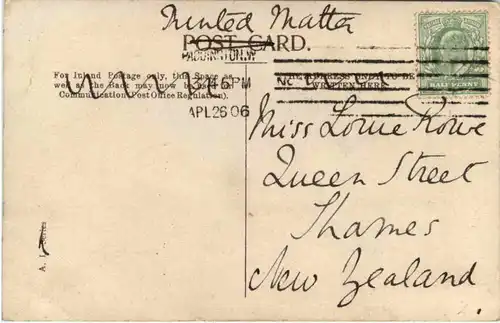 Printed Matter
POST CARD.
PADDINGTON.W
6 PM
APL 26 06
For Inland Postage only, this Space as
well as the Back may now be used for
Communication (Post Office Regulation).
THE ADDRESS ONLY TO BE
WRITTEN HERE.
HALFPENNY
Miss Lorrie Rowe
Queen Street
Thames
New Zealand